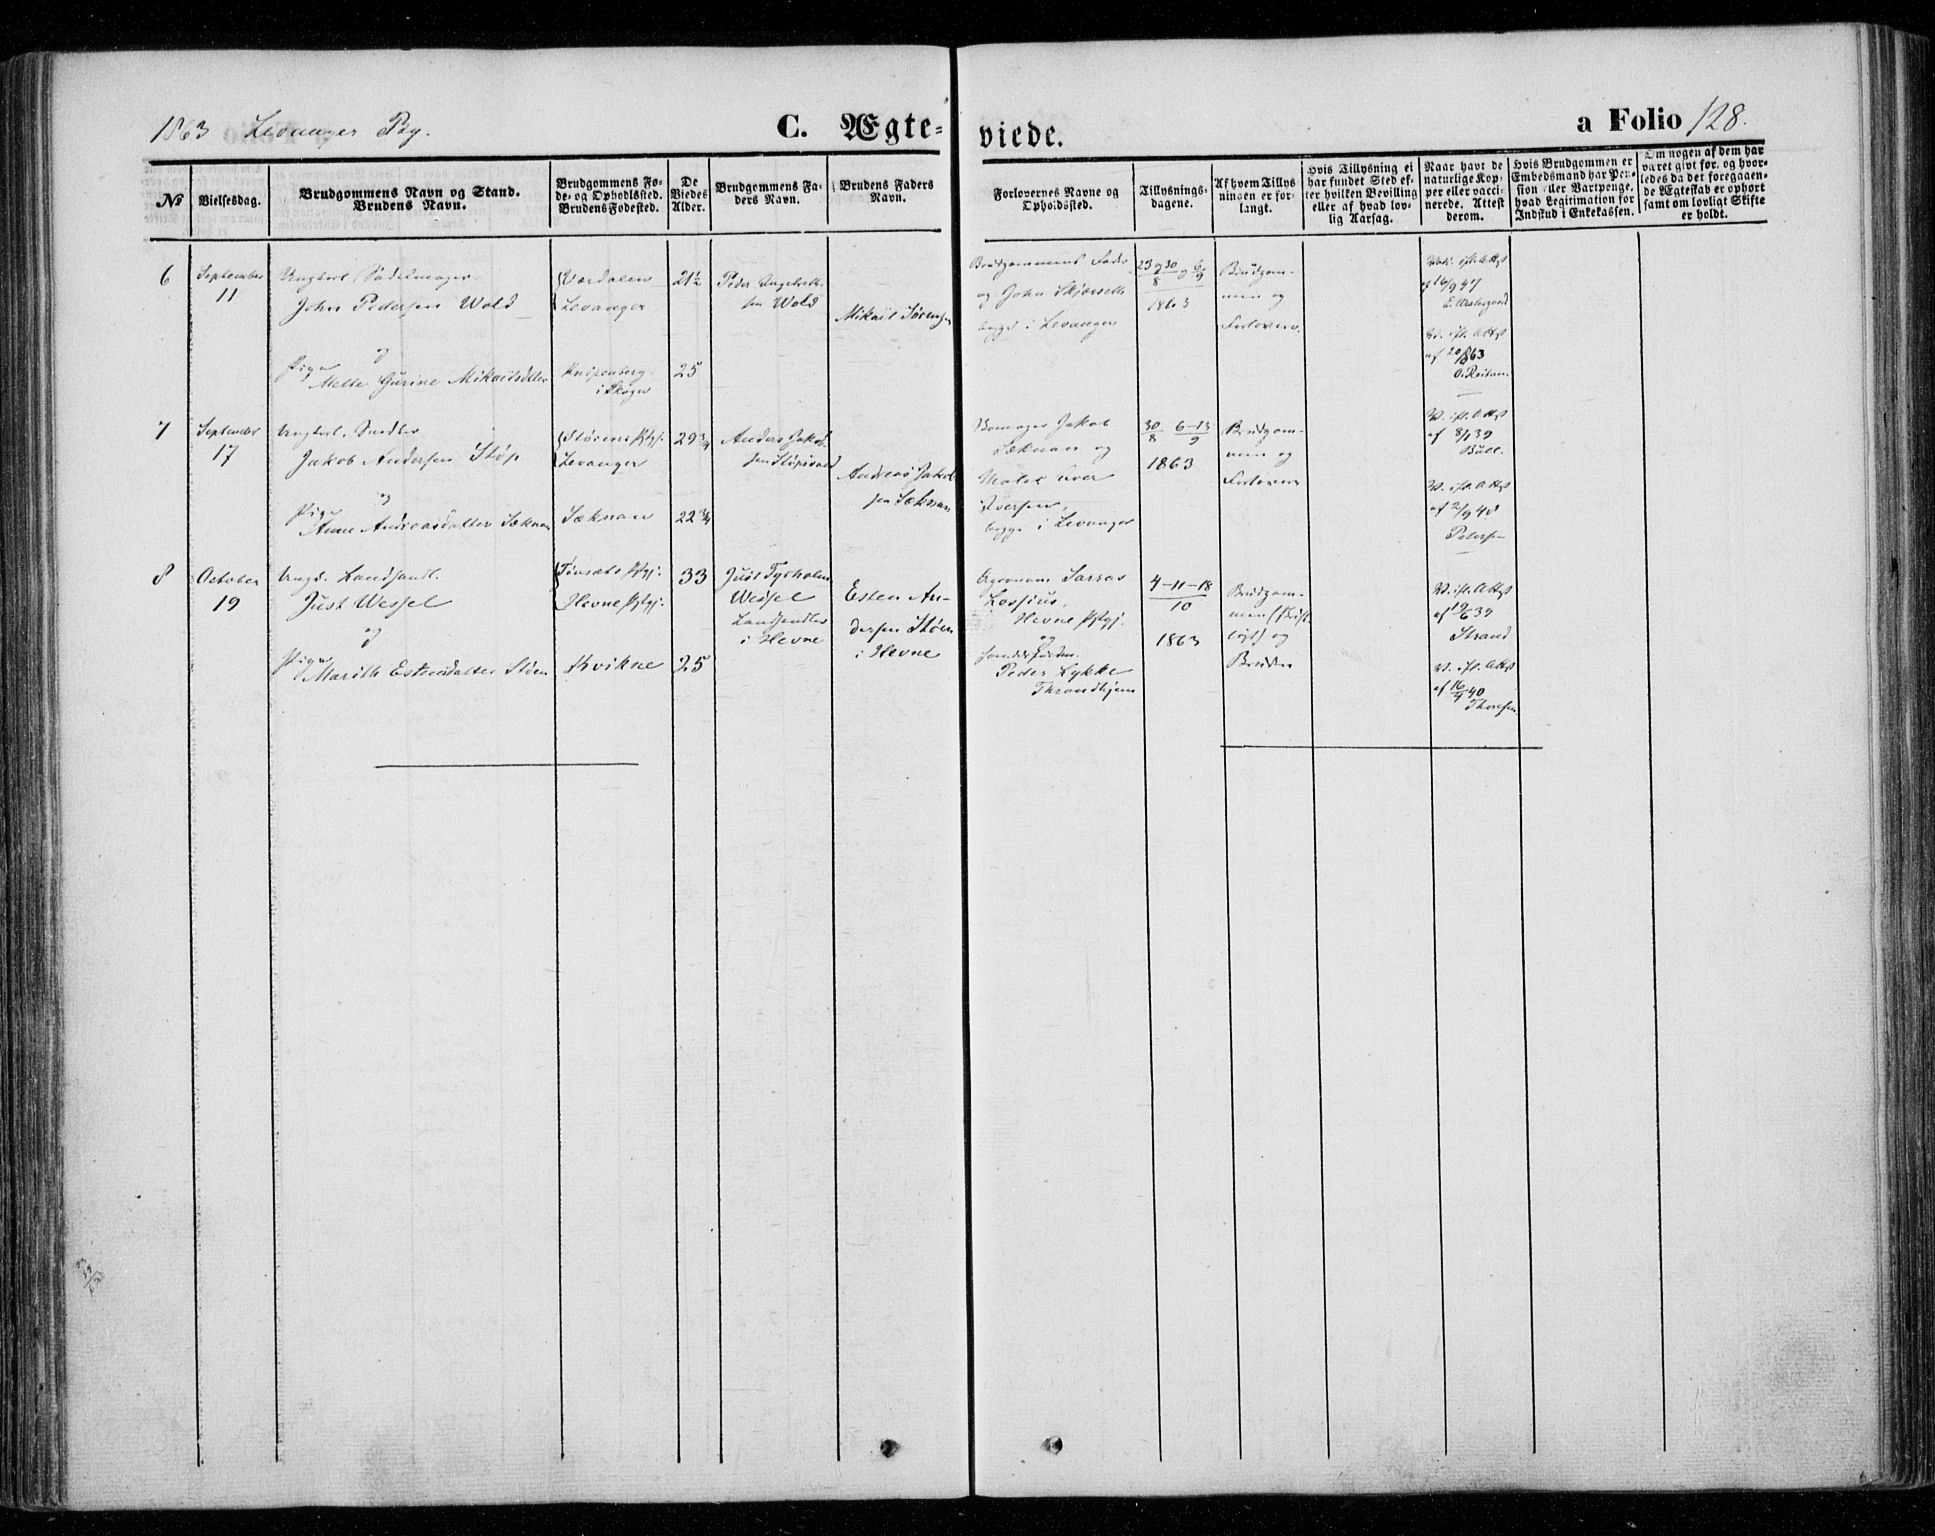 1863 Levanger By.
C. Ægte-
viede.
a Folio 128.
№
Vielsesdag.
Brudgommens Navn og Stand.
Brudens Navn.
Brudgommens Fø-
de- og Opholdssted.
Brudens Fødested.
De
Viedes
Alder.
Brudgommens Fa-
ders Navn.
Brudens Faders
Navn.
Forlovernes Navne og
Opholdssted.
Tillysnings-
dagene.
Af hvem Tillys
ningen er for-
langt.
Hvis Tillysning ei
har fundet Sted ef-
ter hvilken Bevilling
eller af hvad lov-
lig Aarsag.
Naar havt de
naturlige Kop-
per eller vacci-
nerede. Attest
derom.
Hvis Brudgommen er
Embedsmand har Pen-
sion eller Vartpenge,
hvad Legitimation for
Indskud i Enkekassen.
Om nogen af dem har
været givt før, og hvor-
ledes da det foregaaen-
de Ægteskab er ophørt
samt om lovligt Skifte
er holdt.
6
September
11
Ungkarl, Sadelmager
John Pedersen Wold
og
Pige
Mette Gurine Mikaelsdatter
Værdalen
Levanger
21½
25
Peder
sen Wold
Mikael Sørensen
Brudgommens Fader
og John
begge i Levanger
23 og 30 og 6
8 9
1863
Brudgom-
men og
Forlovere
af 16/9 47
af 20/8 63
7
September
17
Ungkarl, Snedker
Jakob Andersen Støp
og
Pige
Anne Andreasdatter Sæknan
Størens Pstgj.
Levanger
Sæknan
29¾
22¾
Anders Jakob-
sen
Andreas Jakob
sen Sæknan
Jakob
Sæknan og
Iver
Iversen,
begge i Levanger
30 6–13
8 9
1863
Brudgom-
men og
Forlovere
V. ifl. Attest
af 8/7 39
Bull.
V. ifl. Attest
af 2/9 48
Petersen
8
October
19
Ungk. Landhandl.
Just Wessel
og
Pige
Marith Estensdatter Støen
Tønsæts Pstgj.
Hevne Pstgj.
Kvikne
33
25
Just Tyrholm
Wessel
Landhandler
i Hevne
Esten An-
dersen Støen
i Hevne
Agronom
Lossius,
Hevne Pstgj.
og
Peder Lykke
Throndhjem
4–11–18
10
1863
Brudgom-
men (Skrift-
ligt) og
Bruden
V. ifl. Attest
af 19/6 39
Strand
V. ifl. Attest
af 16/9 40
Thoresen